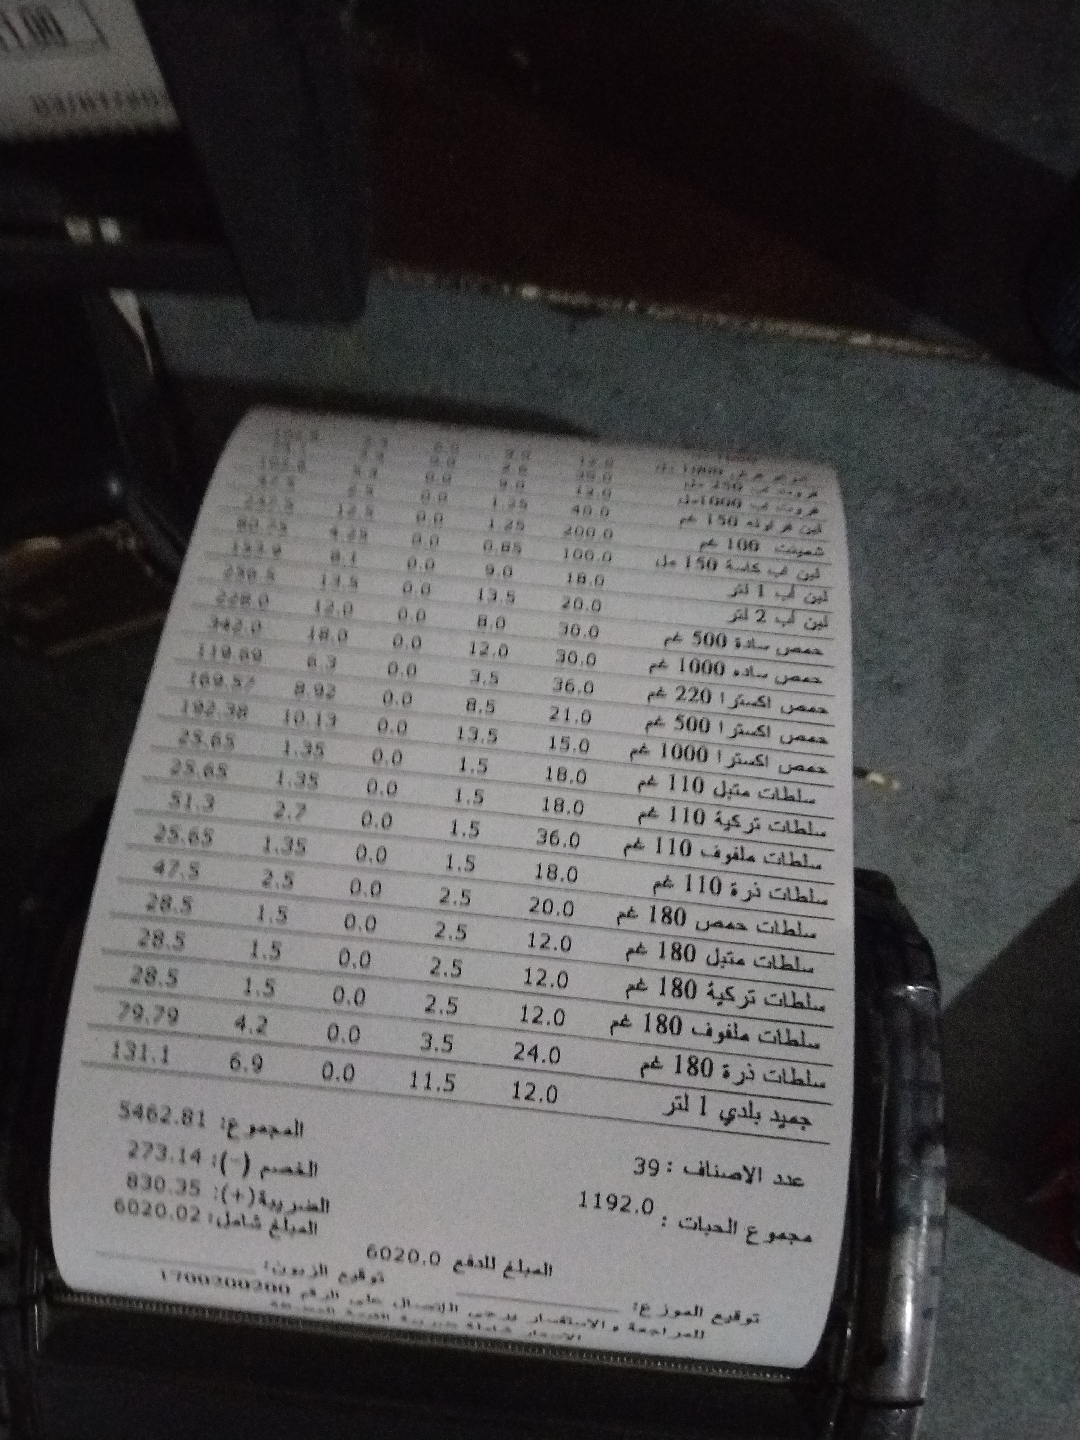 1.00
12.0
250 مل
1000مل 12.0 9.0 0.0
لبن فراوله 150 غم 40.0 1.25 0.0
شمينت 100 غم 200.0 1.25 0.0 12.5
لبن أب كاسة 150 مل 100.0 0.85 0.0 4.25 80.75
لبن أب 1 لتر 18.0 9.0 0.0 8.1 153.9
لبن أب 2 لتر 20.0 13.5 0.0 13.5 256.5
حمص سادة 500 غم 30.0 8.0 0.0 12.0 228.0
حمص ساده 1000 غم 30.0 12.0 0.0 18.0 342.0
حمص اكسترا 220 غم 36.0 3.5 0.0 6.3 119.69
حمص اكسترا 500 غم 21.0 8.5 0.0 8.92 169.57
حمص اكسترا 1000 غم 15.0 13.5 0.0 10.13 192.38
سلطات متبل 110 غم 18.0 1.5 0.0 1.35 25.65
سلطات تركية 110 غم 18.0 1.5 0.0 1.35 25.65
سلطات ملفوف 110 غم 36.0 1.5 0.0 2.7 51.3
سلطات ذرة 110 غم 18.0 1.5 0.0 1.35 25.65
سلطات حمص 180 غم 20.0 2.5 0.0 2.5 47.5
سلطات متبل 180 غم 12.0 2.5 0.0 1.5 28.5
سلطات تركية 180 غم 12.0 2.5 0.0 1.5 28.5
سلطات ملفوف 180 غم 12.0 2.5 0.0 1.5 28.5
سلطات ذرة 180 غم 24.0 3.5 0.0 4.2 79.79
جميد بلدي 1 لتر 12.0 11.5 0.0 6.9 131.1
المجموع: 5462.81
عدد الاصناف : 39 الخصم (-): 273.14
مجموع الحبات : 1192.0 الضريبة(+): 830.35
المبلغ شامل: 6020.02
المبلغ للدفع 6020.0
توقيع الموزع: توقيع الزبون:
للمراجعة و الاستفسار يرجى الاتصال على الرقم 1700200200
الاسعار شاملة ضريبة القيمة المضافة